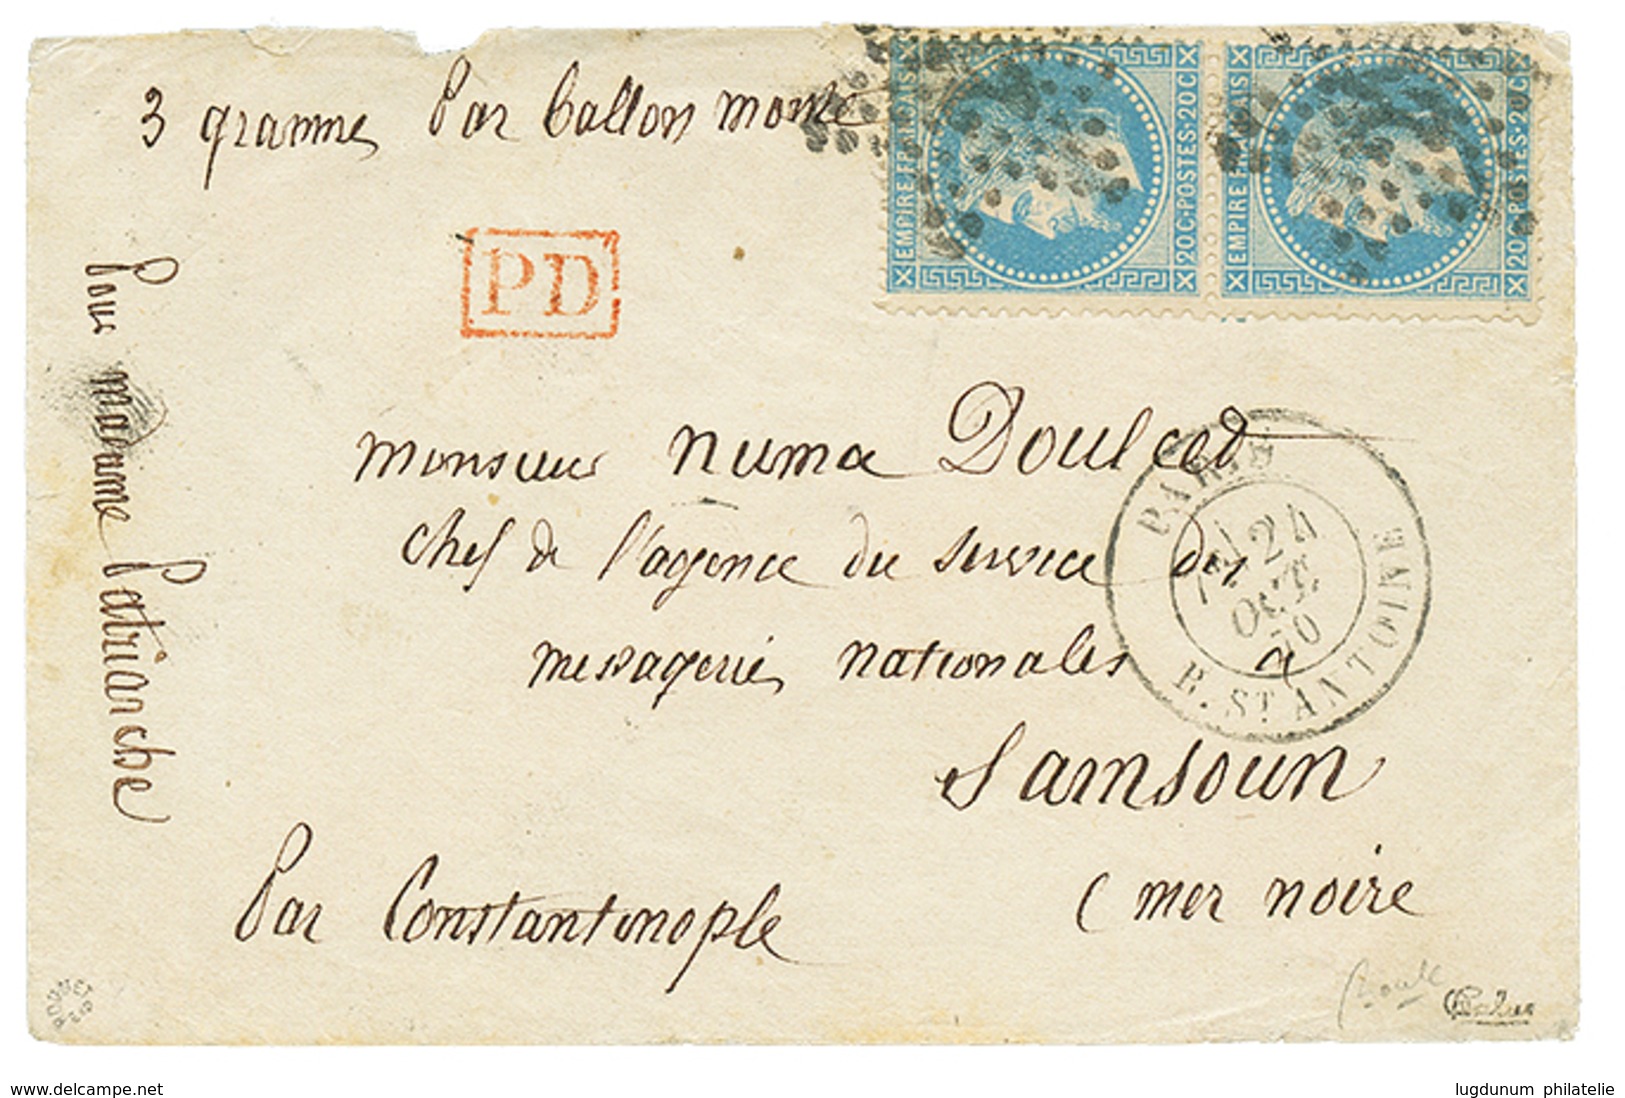 3 gramme Par ballon monté
EMPIRE FRANÇAIS
20 C·POSTES·20 C
EMPIRE FRANÇAIS
20 C·POSTES·20 C
PD
Pour madame Patrianche
monsieur numa Doulced
chef de l'agence du service des
messageries nationales
a
Samsoun
(mer noire
Par Constantinople
PARIS
24
OCT.
70
R. ST ANTOINE
www.delcampe.net
lugdunum philatelie